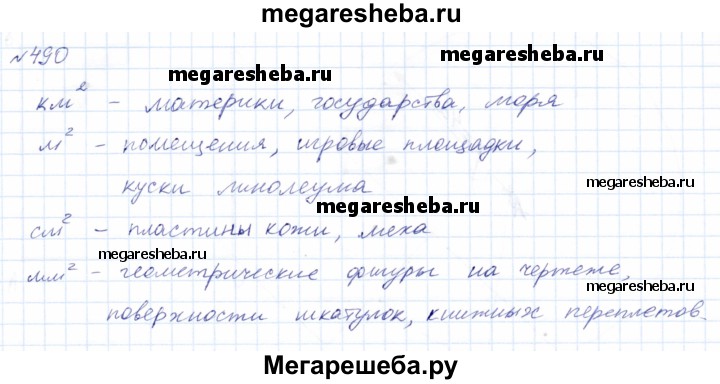 megaresheba.ru
№490
megaresheba.ru
км² – материки, государства, моря
м² – помещения, игровые площадки,
куски линолеума
megaresheba.ru
megaresheba.ru
см² – пластины кожи, меха
megaresheba.ru
мм² – геометрические фигуры на чертеже,
megaresheba.ru
поверхности шкатулок, книжных переплетов.
Мегарешеба.ру